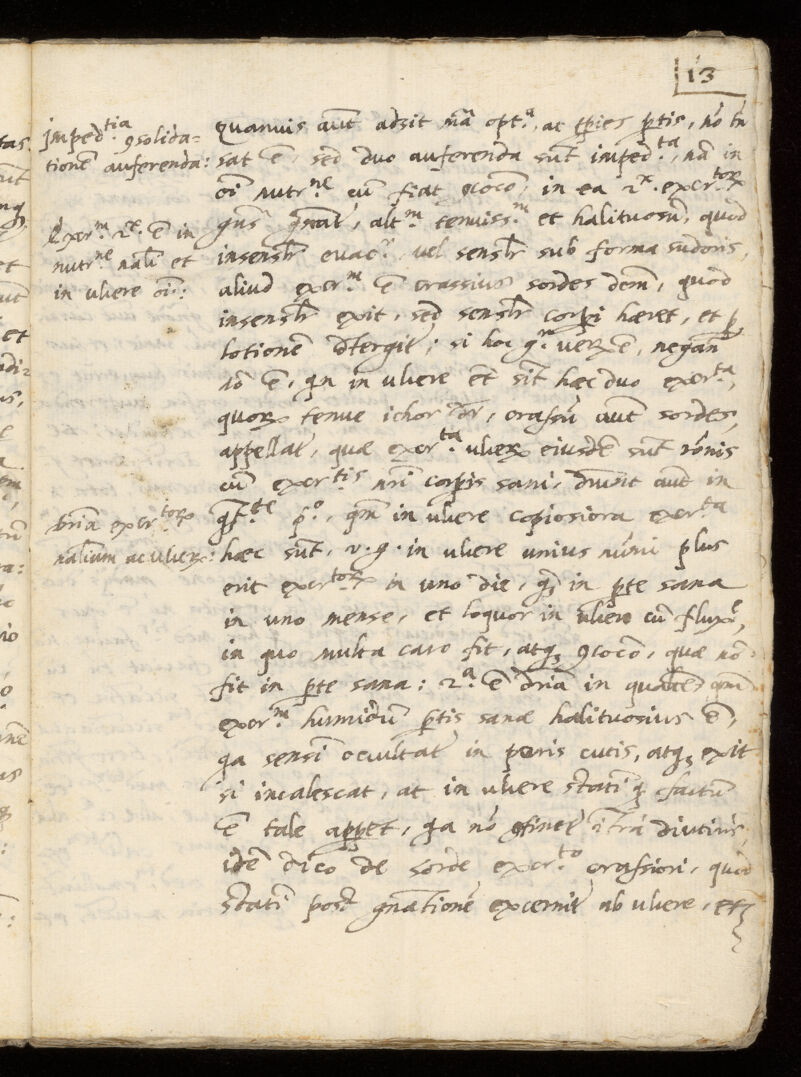 13
Imped.tia ꝯsolida=
tionē auferenda:
Excr.m 2.x ē in
nutr.ne nāli et
in ulcere oī:
dr̄ia excr.torꝝ
naliūm ac ulcerꝝ:
Quanuis aūt adsit mā opt.a, ac tp̄ies ꝑtis, nō tn̄
sat ē, sed duo auferenda sūt imped.ta, nā in
oī nutr.ne cū fiat ꝯcocō, in ea 2.x excr.torꝝ
gūs gn̄at.r, alt.m tenuiss.m et halituosū, quod
insensb̄r evac.r, vel sensb̄r sub forma sudoris,
aliud excr.m ē crassius sordes dem̄, quod
insensb̄r exit, sed sensb̄r corpi hæret, et ꝑ
lotionē dtergit.r; si hoc g.r verꝝ ē, negan
nō ē, qn in ulcere ēt sīt hæc duo excr.ta,
quorꝝ tenue ichor dr̄, crassū aūt sordes,
appellat.r, quæ excr.ta ulcerꝝ eiusdē sūt rōnis
cū excr.tis nr̄i corpis sani, drūnt aūt in
q̄t.te p.o, qm̄ in ulcere copiosiora excr.ta
hæc sūt, v.g. in ulcere unius nūmi plus
erit excr.torꝝ in uno die, q̄ in ꝑte sana
in uno mense, et loquor in ulcere cū fluxōe,
in quo multa caro fit, atqꝫ ꝯcocō, quæ nō
fit in ꝑte sana: 2.a ē dr̄ia in qualte, qm̄
excr.m humidū ꝑtis sanæ halituosius ē,
qa sensī occultat.r in poris cutis, atqꝫ exit
si incalescat, at in ulcere statī qꝫ factū
ē tale appet, qa nō ꝯtinet.r ītrā diutius,
idē dico de sorde excr.to crassiori, quod
statī post gnātionē excernit.r ab ulcere, et